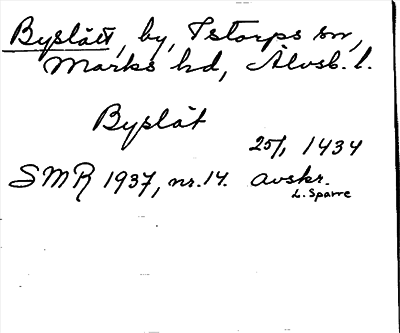 Byslätt, by, Istorps sn,
Marks hd, Älvsb. l.
Byslät
25/1 1434
SMR 1937, nr. 14. avskr.
L. Sparre